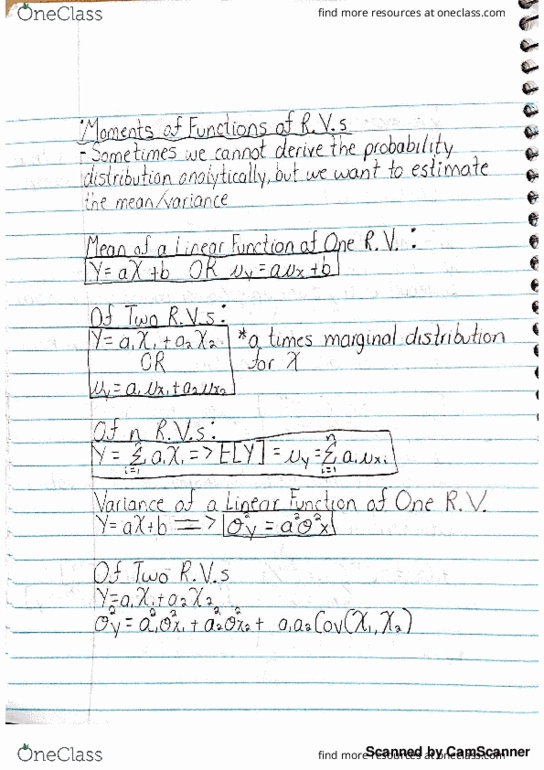 OneClass
find more resources at oneclass.com
Moments of Functions of R.V.s
- Sometimes we cannot derive the probability
distribution analytically, but we want to estimate
the mean/variance
Mean of a Linear Function of One R.V.:
Y = aX + b OR μy = aμx + b
Of Two R.V.s:
Y = a₁X₁ + a₂X₂ *a times marginal distribution
OR for X
μy = a₁μx₁ + a₂μx₂
Of n R.V.s:
Y = Σᵢ₌₁ⁿ aᵢXᵢ => E[Y] = μy = Σᵢ₌₁ⁿ aᵢμxᵢ
Variance of a Linear Function of One R.V.
Y = aX + b => σ²y = a²σ²x
Of Two R.V.s
Y = a₁X₁ + a₂X₂
σ²y = a₁²σ²x₁ + a₂²σ²x₂ + a₁a₂Cov(X₁, X₂)
OneClass
find more resources at oneclass.com
Scanned by CamScanner